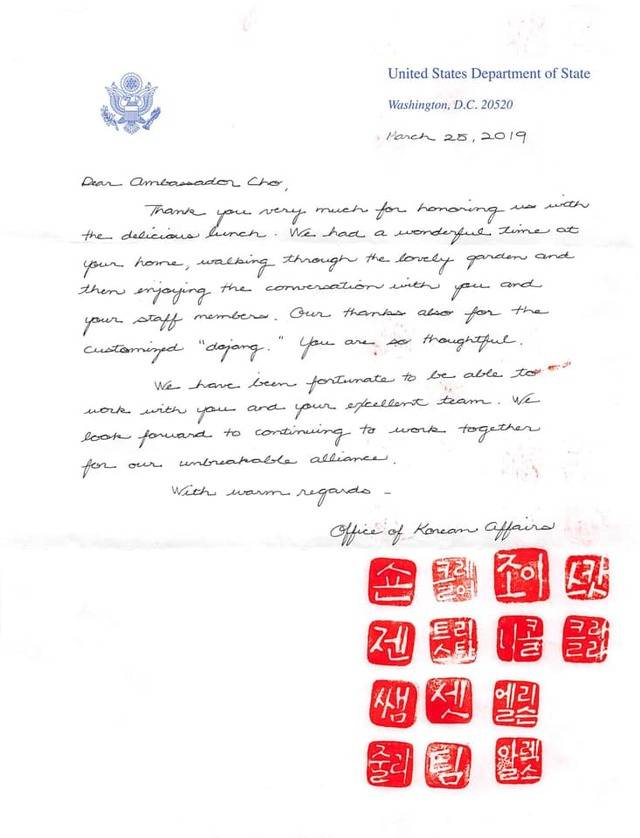 United States Department of State
Washington, D.C. 20520
March 25, 2019
Dear Ambassador Cho,
Thank you very much for honoring us with
the delicious lunch. We had a wonderful time at
your home, walking through the lovely garden and
then enjoying the conversation with you and
your staff members. Our thanks also for the
customized "dojang." You are so thoughtful.
We have been fortunate to be able to
work with you and your excellent team. We
look forward to continuing to work together
for our unbreakable alliance.
With warm regards -
Office of Korean Affairs
숀 조이 스캇
젠 트리스탄 니콜 클라라
쌤 셋 엘리슨
줄리 팀